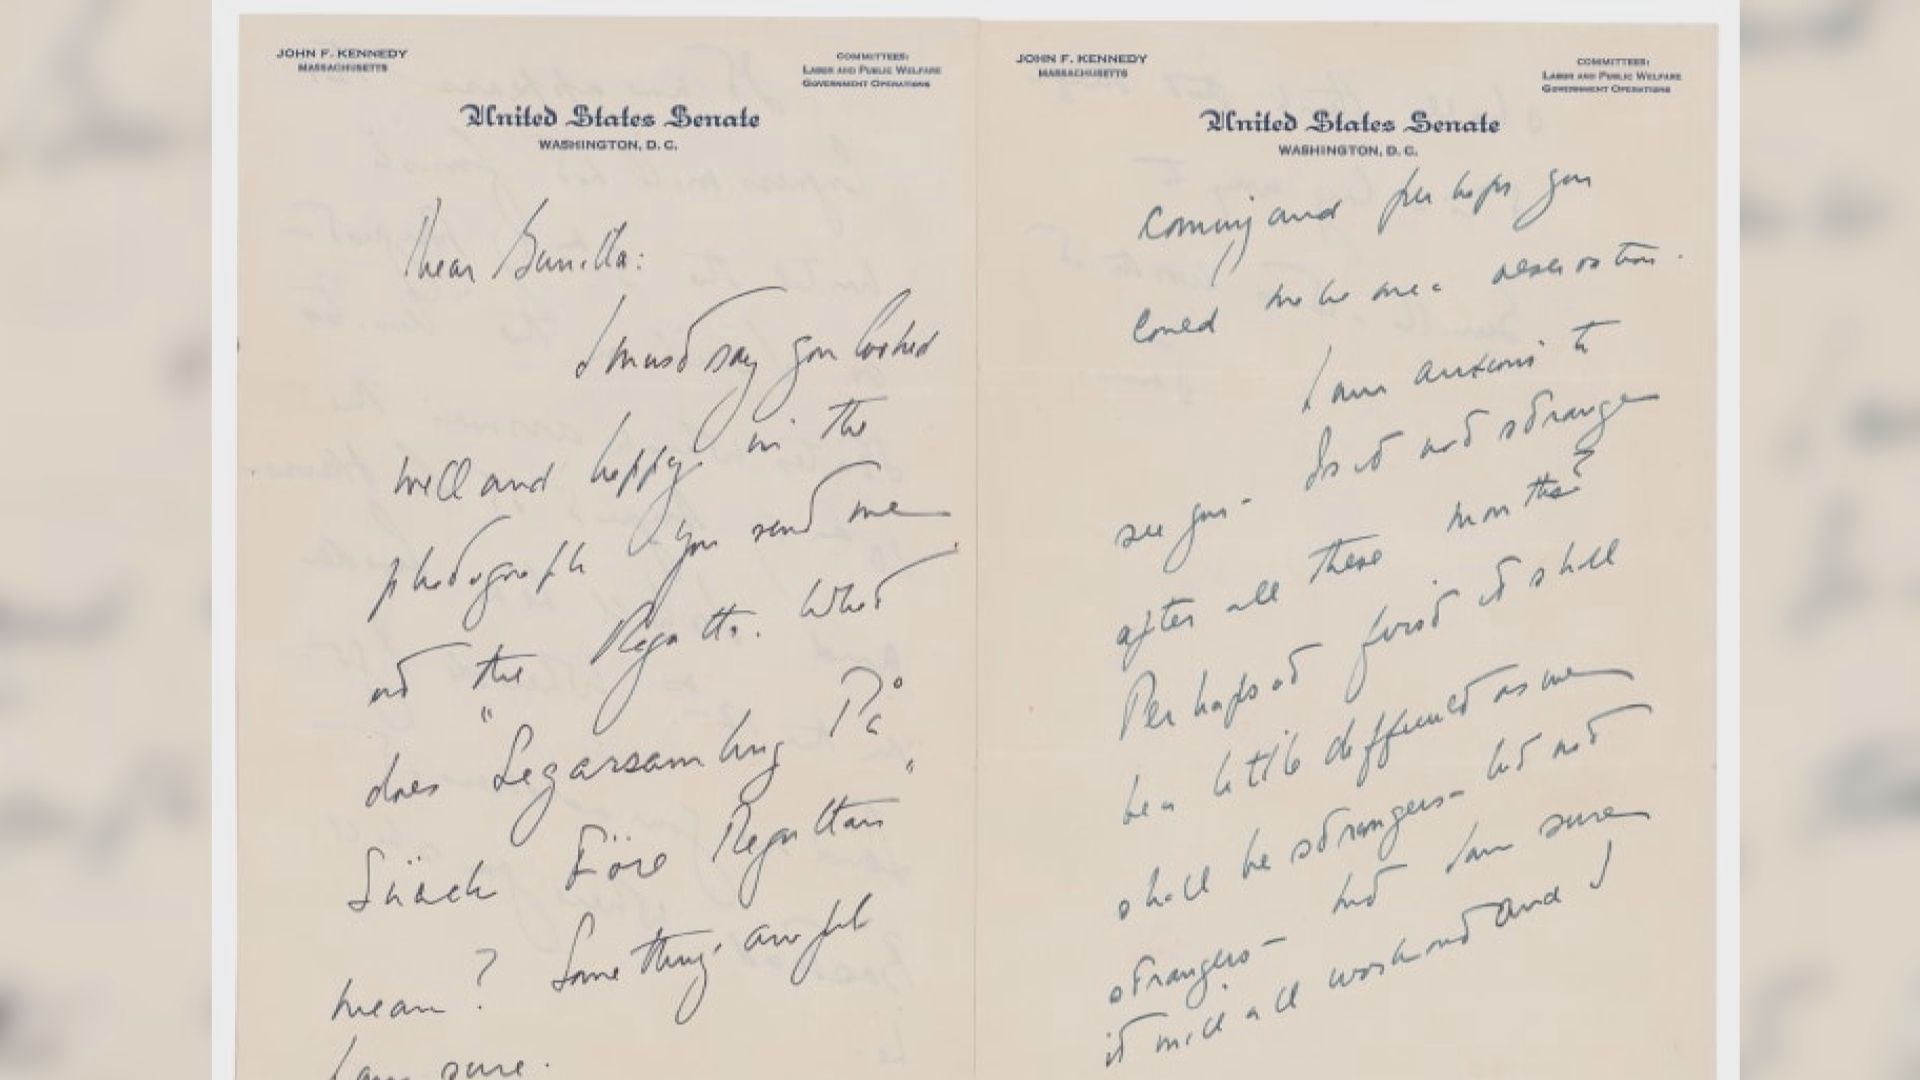 JOHN F. KENNEDY
MASSACHUSETTS
COMMITTEES:
LABOR AND PUBLIC WELFARE
GOVERNMENT OPERATIONS
United States Senate
WASHINGTON, D. C.
Dear Gunilla:
I must say you looked
well and happy in the
photograph you send me
at the Regatta. What
does "Segarsamling På
Snäck Före Regattan"
mean? Something awful
I am sure.
JOHN F. KENNEDY
MASSACHUSETTS
COMMITTEES:
LABOR AND PUBLIC WELFARE
GOVERNMENT OPERATIONS
United States Senate
WASHINGTON, D. C.
Coming and perhaps you
could make me a reservation.
I am anxious to
see you - Is it not strange
after all these months?
Perhaps at first it shall
be a little difficult as we
shall be strangers - but not
strangers - but I am sure
it will all work out and I